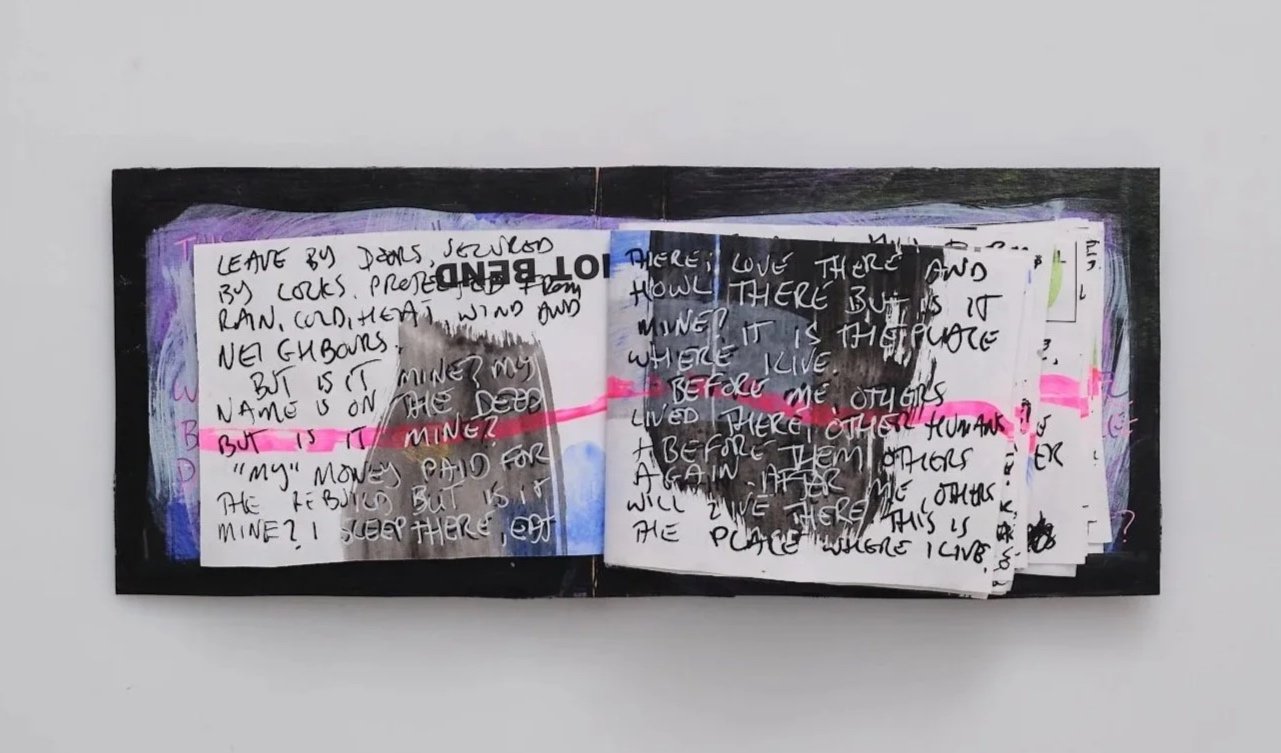 LEAVE BY DOORS, SECURED
BY LOCKS. PROTECTED FROM
RAIN, COLD, HEAT, WIND AND
NEIGHBOURS.
BUT IS IT MINE? MY
NAME IS ON THE DEED
BUT IS IT MINE?
"MY" MONEY PAID FOR
THE REBUILD BUT IS IT
MINE? I SLEEP THERE, EAT
OT BEND
THERE, LOVE THERE AND
HOWL THERE BUT IS IT
MINE? IT IS THE PLACE
WHERE I LIVE.
BEFORE ME, OTHERS
LIVED THERE, OTHER HUMANS
& BEFORE THEM OTHERS
AGAIN. AFTER ME, OTHERS
WILL LIVE THERE THIS IS
THE PLACE WHERE I LIVE.